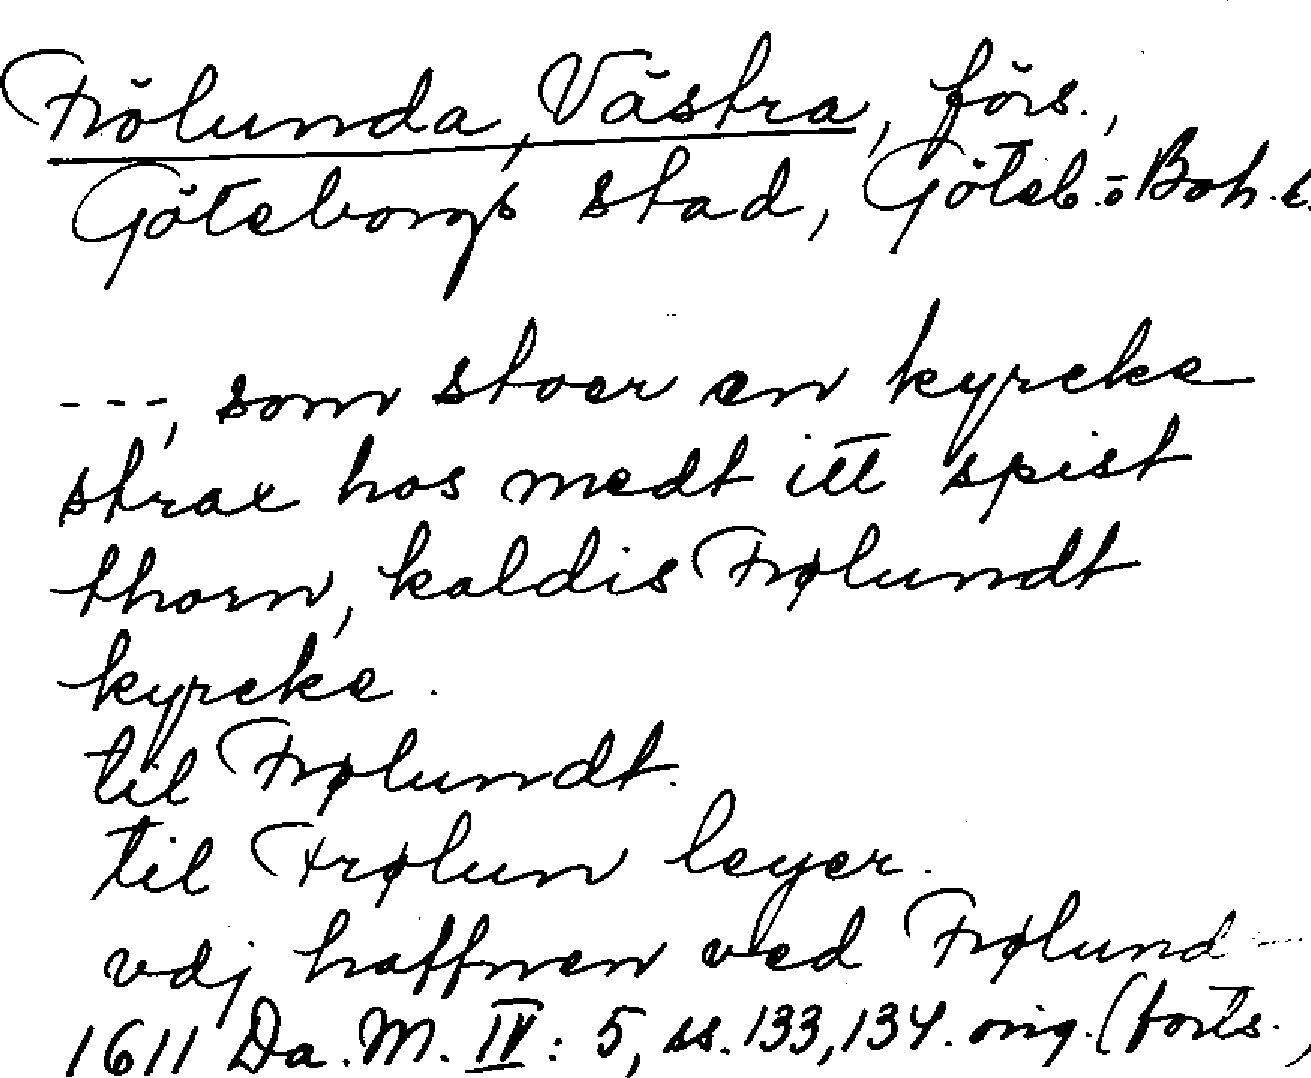 Frölunda, Västra, förs.,
Göteborgs stad, Göteb. o. Boh. l.
---, som stoer en kyrcke
strax hos medt itt spist
thorn, kaldis Frølundt
kyrcke.
til Frølundt.
til Frølun leyer.
vdj haffnen ved Frølund ---
1611 Da. M. IV: 5, ss. 133, 134. orig. (forts.)